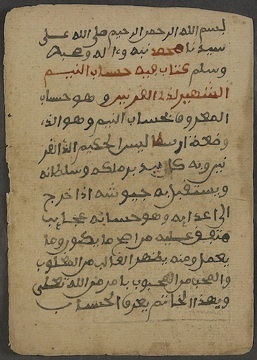 بسم الله الرحمن الرحيم صلى الله على
سيدنا محمد نبيه وءاله وصحبه
وسلم كتاب فيه حساب النيم
الشهير لذي القرنين وهو حساب
المعروف بحساب النيم وهو الذي
وضعه ارسطاليس الحكيم لذي القر
نين وبه كان يدبر ملكه وسلطانه
ويستقبل به جيوشه اذا خرج
الى اعدايه وهو حسابه عجايب
متفق عليه من اهر ما يكون وما
يعمل ومنه يظهر الغالب من المغلوب
والمحب من المحبوب بامر من الله تعلى
وبهذا الخاتم يعرف الحساب